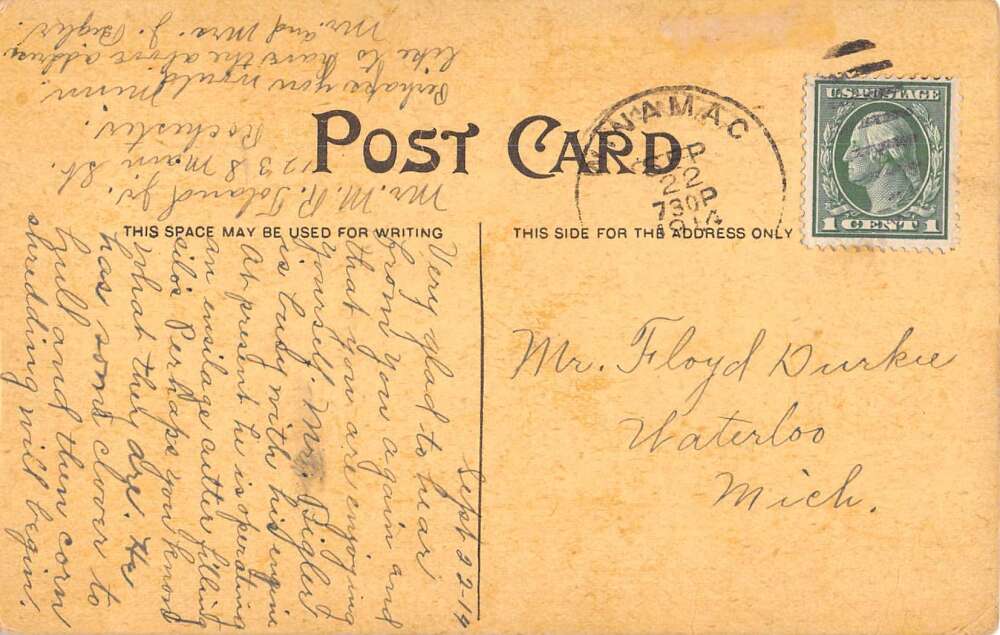 POST CARD
WINAMAC
SEP
22
730P
1914
U.S. POSTAGE
1 CENT 1
THIS SPACE MAY BE USED FOR WRITING
THIS SIDE FOR THE ADDRESS ONLY
Mr. Floyd Durkie
Waterloo
Mich.
Sept 22-14
Very glad to hear
from you again and
that you are enjoying
yourself. Mr. Bigler
is busy with his engine
At present he is operating
an ensilage cutter filling
silos Perhaps you know
what they are. He
has some clover to
hull and then corn
shredding will begin.
Mr. M. R. Toland Jr.
1238 Main St.
Rochester.
Minn.
Perhaps you would
like to have the above address
Mr. and Mrs. J. Bigler.